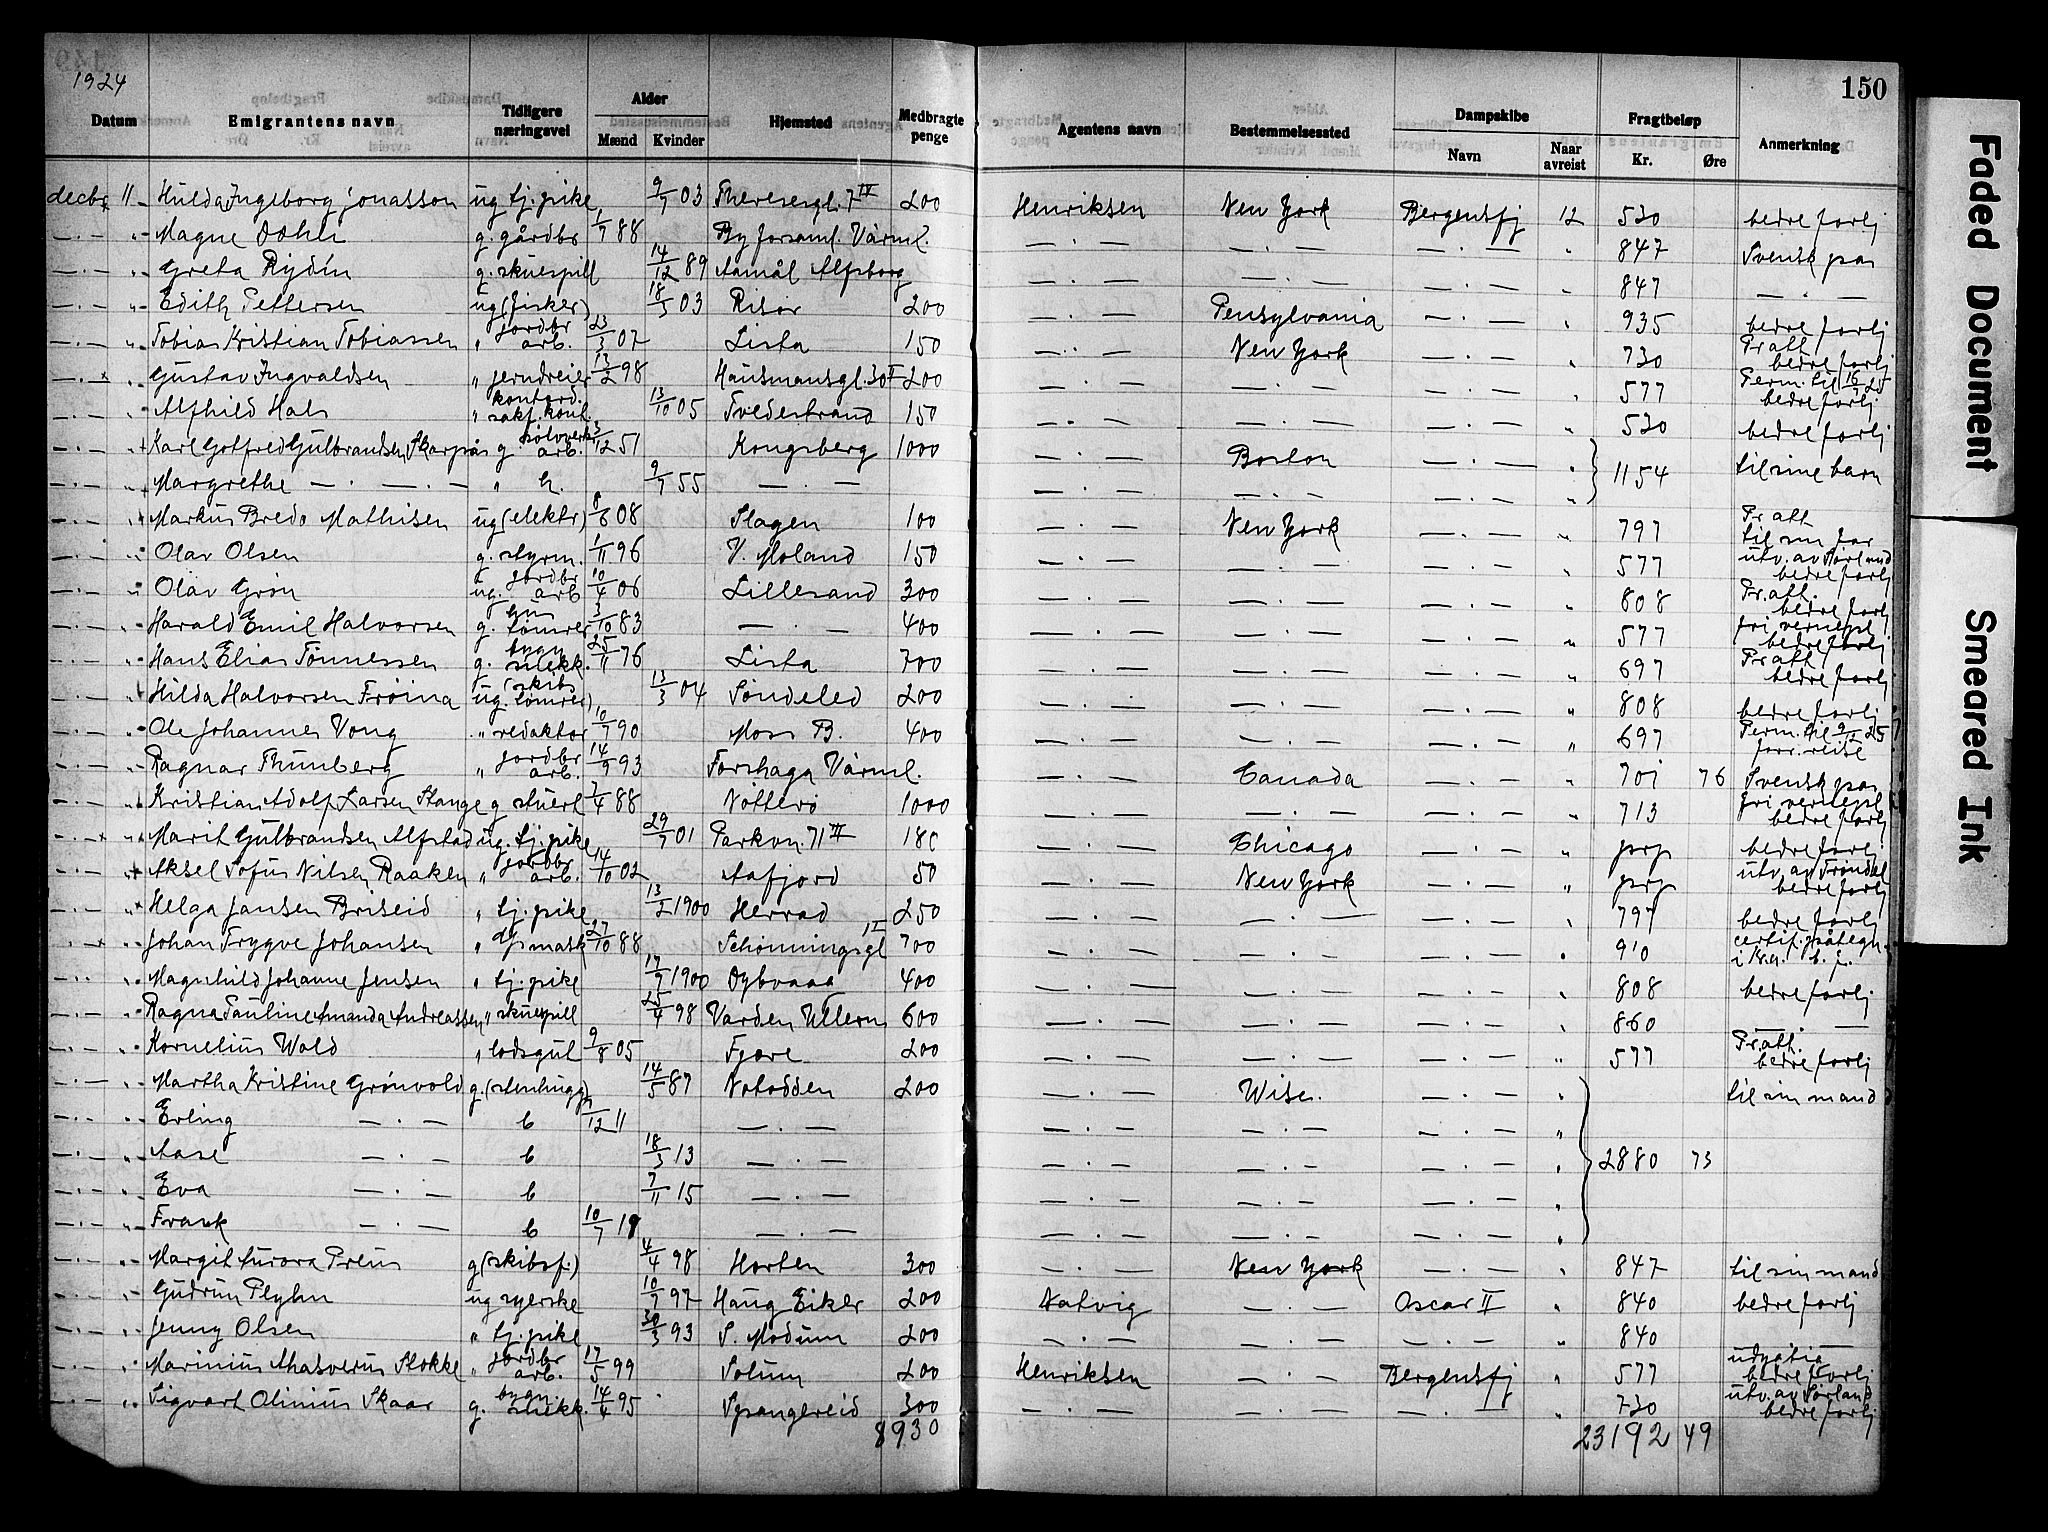 1924
150
Datum Emigrantens navn Tidligere næringsvei Alder Mænd Kvinder Hjemsted Medbragte penge Agentens navn Bestemmelsessted Dampskibe Navn Naar avreist Fragtbeløp Kr. Øre Anmerkning
decbr 11 Hulda Ingeborg Jonasson ug tj. pike 9/7 03 Theresesgt. 7 IV 200 Henriksen New York Bergensfj 12 530 bedre forhj
— . — " Magne Dahl g. gårdbr 1/7 88 By forsaml. Värml. — . — — . — — . — " 847 Svensk pas
— . — " Greta Rydén g. skuespill 14/12 89 Aamål Alfsborg — . — — . — — . — " 847 — . —
— . — " Edith Pettersen ug (fisker) 18/3 03 Risør 200 — . — Pensylvania — . — " 935 bedre forhj
— . — " Tobias Kristian Tobiassen " jordbr arb. 23/3 07 Lista 150 — . — New York — . — " 730 Pr att bedre forhj
— . — " Gustav Ingvaldsen " jerndreier 13/2 98 Hausmansgt. 30 II 200 — . — — . — — . — " 577 Perm. til 16/ 25 bedre forhj
— . — " Alfhild Hals " kontord. sakf. kont. 13/10 05 Tvedestrand 150 — . — — . — — . — " 530 bedre forhj
— . — " Karl Gotfred Gulbrandsen Skarpås g sølvverks arb. 3/12 51 Kongsberg 1000 — . — Boston — . — " 1154 til sine barn
— . — " Margrethe — . — . — " h. 9/7 55 — . — — . — — . — — . — "
— . — " Markus Bredo Mathisen ug (elektr) 8/6 08 Slagen 100 — . — New York — . — " 797 Pr att til sin far
— . — " Olav Olsen g. styrm. 1/11 96 V. Moland 150 — . — — . — — . — " 577 utv. av Sørland bedre forhj
— . — " Olav Grøn ug. jordbr arb 10/4 06 Lillesand 300 — . — — . — — . — " 808 Pr. att. bedre forhj
— . — " Harald Emil Halvorsen g. tømrer 3/10 83 — . — 400 — . — — . — — . — " 577 fri vernepl bedre forhj
— . — " Hans Elias Tønnessen g. bygn snekk. 25/11 76 Lista 700 — . — — . — — . — " 697 Pr att bedre forhj
— . — " Hilda Halvorsen Frøina ug. (skibs tømrer) 13/3 04 Søndeled 200 — . — — . — — . — " 808 bedre forhj
— . — " Ole Johannes Vong " redaktør 10/7 90 Moss B. 400 — . — — . — — . — " 697 Perm. til 9/2 25 forr. reise
— . — " Ragnar Thunberg " jordbr arb. 14/9 93 Forshaga Värml. — . — Canada — . — " 701 76 Svensk pas
— . — " Kristian Adolf Larsen Stange g stuert 7/4 88 Nøtterø 1000 — . — — . — — . — " 713 fri vernepl bedre forhj
— . — " Marit Gulbrandsen Alfstad ug. tj. pike 29/7 01 Parkvn. 71 III 180 — . — Chicago — . — " prp bedre forhj
— . — " Aksel Sofus Nilsen Raaken " jordbr arb. 14/10 02 Aafjord 50 — . — New York — . — " prp utv. av Trøndel bedre forhj
— . — " Helga Jansen Briseid " tj. pike 13/2 1900 Herrad 250 — . — — . — — . — " 797 bedre forhj
— . — " Johan Trygve Johansen " dpmask 27/10 88 Schønningsgt II 700 — . — — . — — . — " 910 certif. påtegn. i Kra. b. f.
— . — " Magnhild Johanne Jensen " tj. pike 17/9 1900 Dybvaag 400 — . — — . — — . — " 808 bedre forhj
— . — " Ragna Pauline Amanda Andreassen " skuespill 25/4 98 Varden Ullern 600 — . — — . — — . — " 860 — . —
— . — " Kornelius Wold " lodsgut 9/8 05 Fjære 200 — . — — . — — . — " 577 Pr att. bedre forhj
— . — " Martha Kristine Grønvold g. (stenhugg) 14/5 87 Notodden 200 — . — Wise. — . — " til sin mand
— . — " Erling — . — b /12 11 — . — — . — — . — — . — "
— . — " Aase — . — b 18/3 13 — . — — . — — . — — . — " 2880 73
— . — " Eva — . — b 7/11 15 — . — — . — — . — — . — "
— . — " Frank — . — b 10/7 19 — . — — . — — . — — . — "
— . — " Margit Aurora Preus g (skibsf.) 4/4 98 Horten 300 — . — New York — . — " 847 til sin mand
— . — " Gudrun Plyhn ug syerske 10/7 97 Haug Eiker 200 Natvig — . — Oscar II " 840 bedre forhj
— . — " Jenny Olsen " tj. pike 30/3 93 S. Modum 200 — . — — . — — . — " 840 — . —
— . — " Marinius Ahasverus Stokke " jordbr arb. 17/5 99 Solum 200 Henriksen — . — Bergensfj " 577 bedre forhj
— . — " Sigvart Olinius Skaar g. bygn. snekk. 14/4 95 Spangereid 300 — . — — . — — . — " 730 utv. av Sørland bedre forhj
8930 23192 49
Faded Document
Smeared Ink